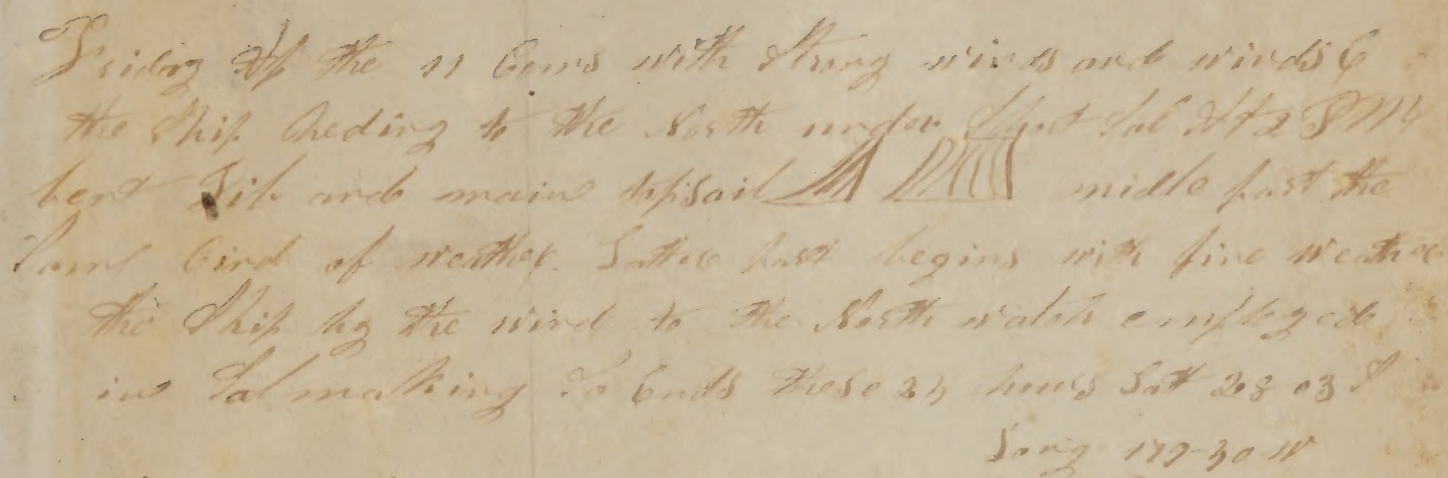 Friday Ap the 11 Coms with Strong winds and winds
the Ship heding to the North under Short Sal At 2 PM
bent Jib and main topsail midle part the
Same Cind of weather Latter part begins with fine weather
the Ship by the wind to the North watch employed
in Salmaking So Ends these 24 hours Latt 28 03 S
Long 179-30 W